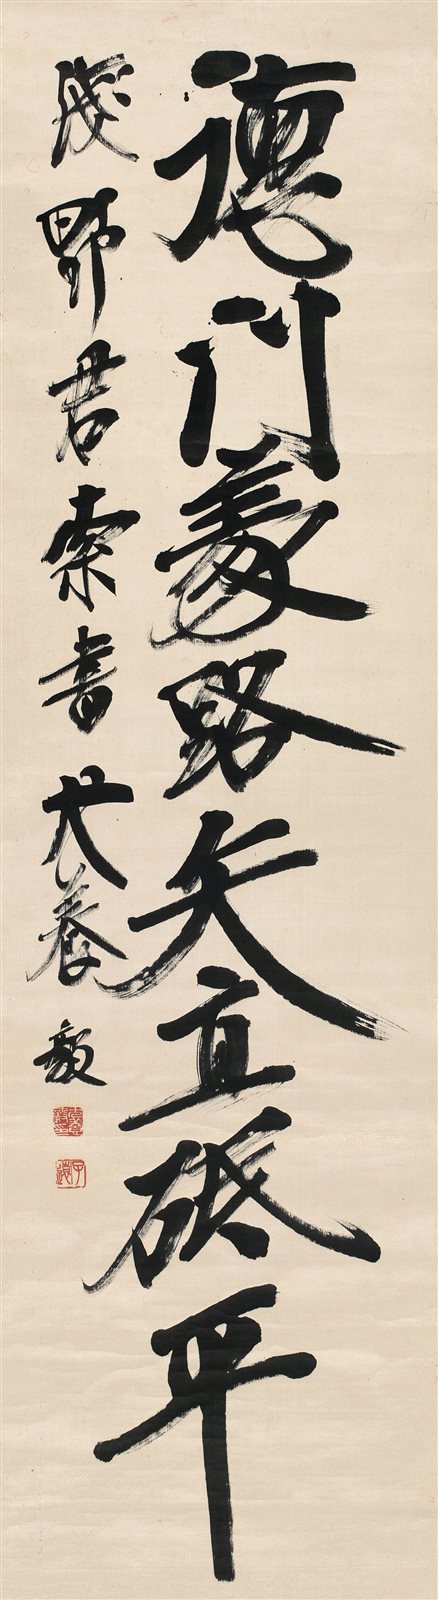 德門義路矢直砥平
淺野君索書 犬養毅